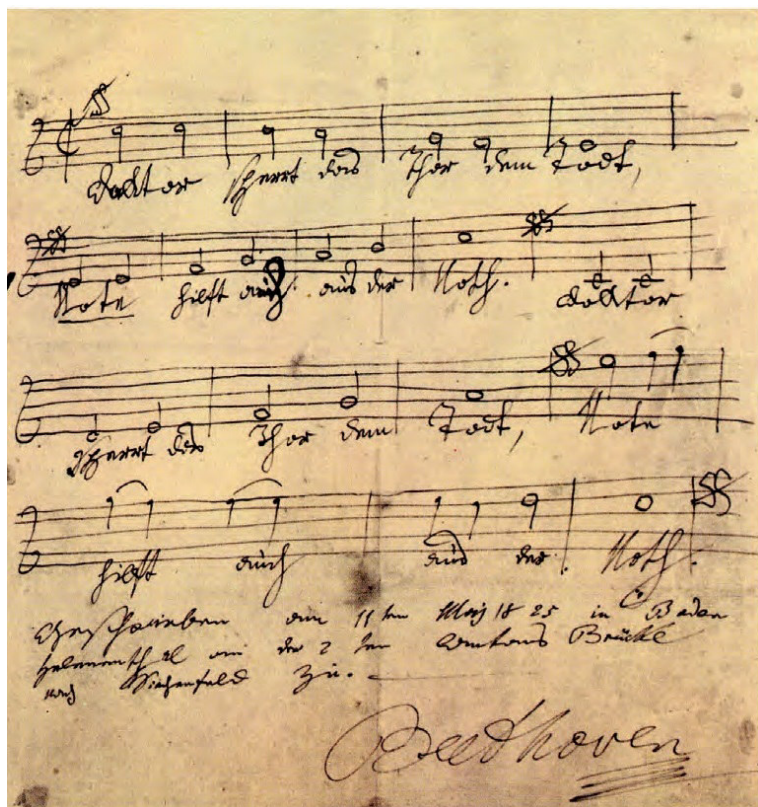 Doktor sperrt das Thor dem Todt,
Note hilft auch aus der Noth. Doktor
sperrt das Thor dem Todt, Note
hilft auch aus der Noth.
Geschrieben am 11ten May 1825 in Baden
Helenenthal an der 2ten Antons Brücke
nach Siechenfeld zu.
Beethoven